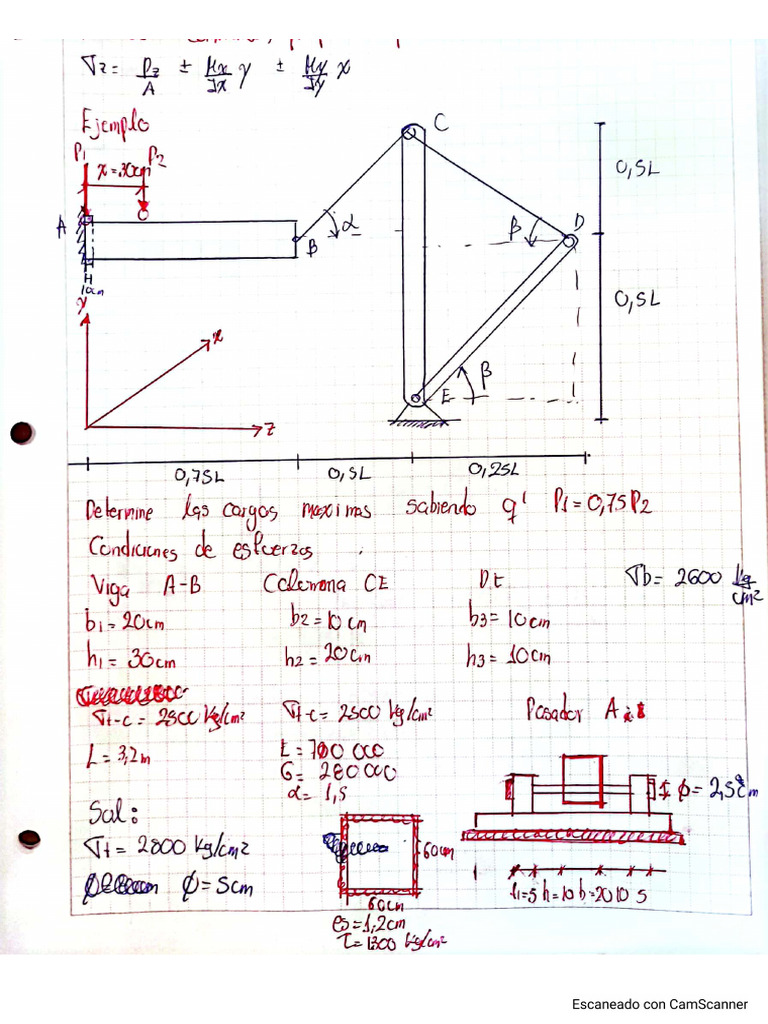 σz = Pz/A ± Mx/Jx y ± My/Jy x
Ejemplo
P1
x=30cm
P2
A
B
α
C
β
D
0,5L
0,5L
H
10cm
y
x
z
E
β
0,75L
0,5L
0,25L
Determine las cargas maximas sabiendo q' P1=0,75P2
Condiciones de esfuerzos
Viga A-B Columna CE DE σb= 2600 kg/cm²
b1=20cm b2=10cm b3=10cm
h1=30cm h2=20cm h3=10cm
σt-c= 2500 kg/cm² σt-c= 2500 kg/cm² Pasador A
L=3,2m E=700 000
G= 280 000
α=1,5
ϕ=2,5cm
Sol:
σt= 2800 kg/cm²
ϕ=5cm
60cm
60cm
es=1,2cm
τ=1300 kg/cm²
h=10 b=20 10 5
Escaneado con CamScanner